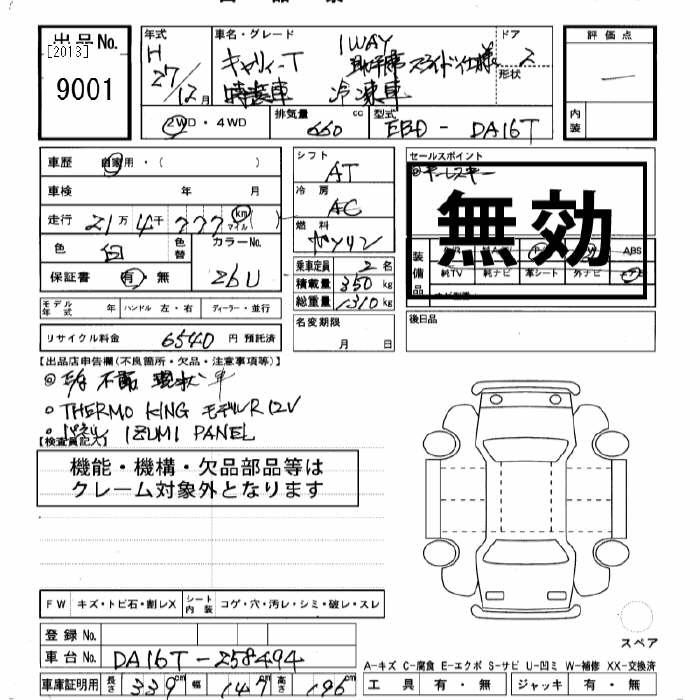 出品No.
[2013]
9001
年式
H
27
12月
車名・グレード
キャリィーT 1WAY
助手席スライド仕様
特装車 冷凍車
ドア
2
形状
評価点
内装
②WD・4WD
排気量
660 cc
型式
EBD - DA16T
車歴 自家用・( )
車検 年 月
走行 21万4千777 km マイル ( )
色 白 色替 カラーNo. 26U
保証書 有・無
モデル年式 年 ハンドル 左・右 ディーラー・並行
リサイクル料金 6540 円 預託済
シフト
AT
冷房
AC
燃料
ガソリン
乗車定員 2名
積載量 350kg
総重量 1310kg
名変期限
月 日
セールスポイント
◎キーレスキー
無効
装備品
ABS
純TV 純ナビ 革シート 外ナビ エアB
後日品
【出品店申告欄(不良箇所・欠品・注意事項等)】
現状車
○ THERMO KING モデルR 12V
○ IZUMI PANEL
【検査員記入】
機能・機構・欠品部品等は
クレーム対象外となります
FW キズ・トビ石・割レX シート内装 コゲ・穴・汚レ・シミ・破レ・スレ
登録No.
車台No. DA16T-258494
車庫証明用 長さ 339cm 幅 147cm 高さ 196cm
スペア
A-キズ C-腐食 E-エクボ S-サビ U-凹ミ W-補修 XX-交換済
工具 有・無 ジャッキ 有・無